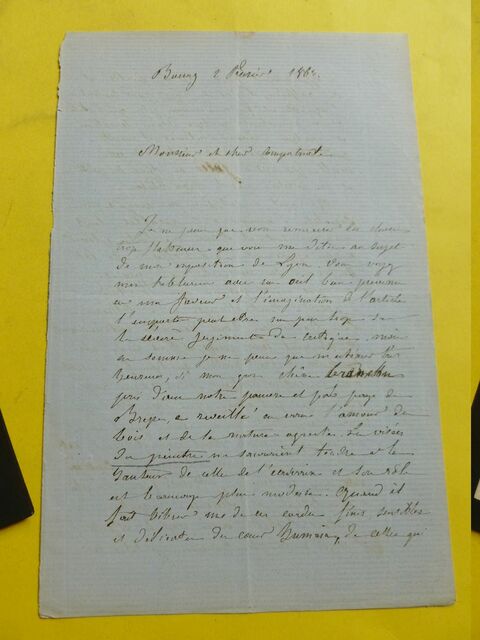 Bourg 2 Février 186
Monsieur et cher compatriote
Je ne puis que vous remercier des choses
trop flatteuses que vous me dites au sujet
de mon exposition de Lyon. Vous voyez
mes tableaux avec un œil bien prévenu
en ma faveur et l'imagination de l'artiste
l'emporte peut-être un peu trop sur
le sévère jugement du critique, mais
en somme je ne puis que m'estimer très
heureux, si mon gros chêne
pris dans notre pauvre et pays de
Bresse, a réveillé en vous l'amour des
bois et de la nature agreste. Les visées
du peintre ne sauraient tendre à la
hauteur de celle de l'écrivain et son rôle
est beaucoup plus modeste. Quand il
fait vibrer une de ces cordes fines sensibles
et délicates du cœur humain, de celles qui